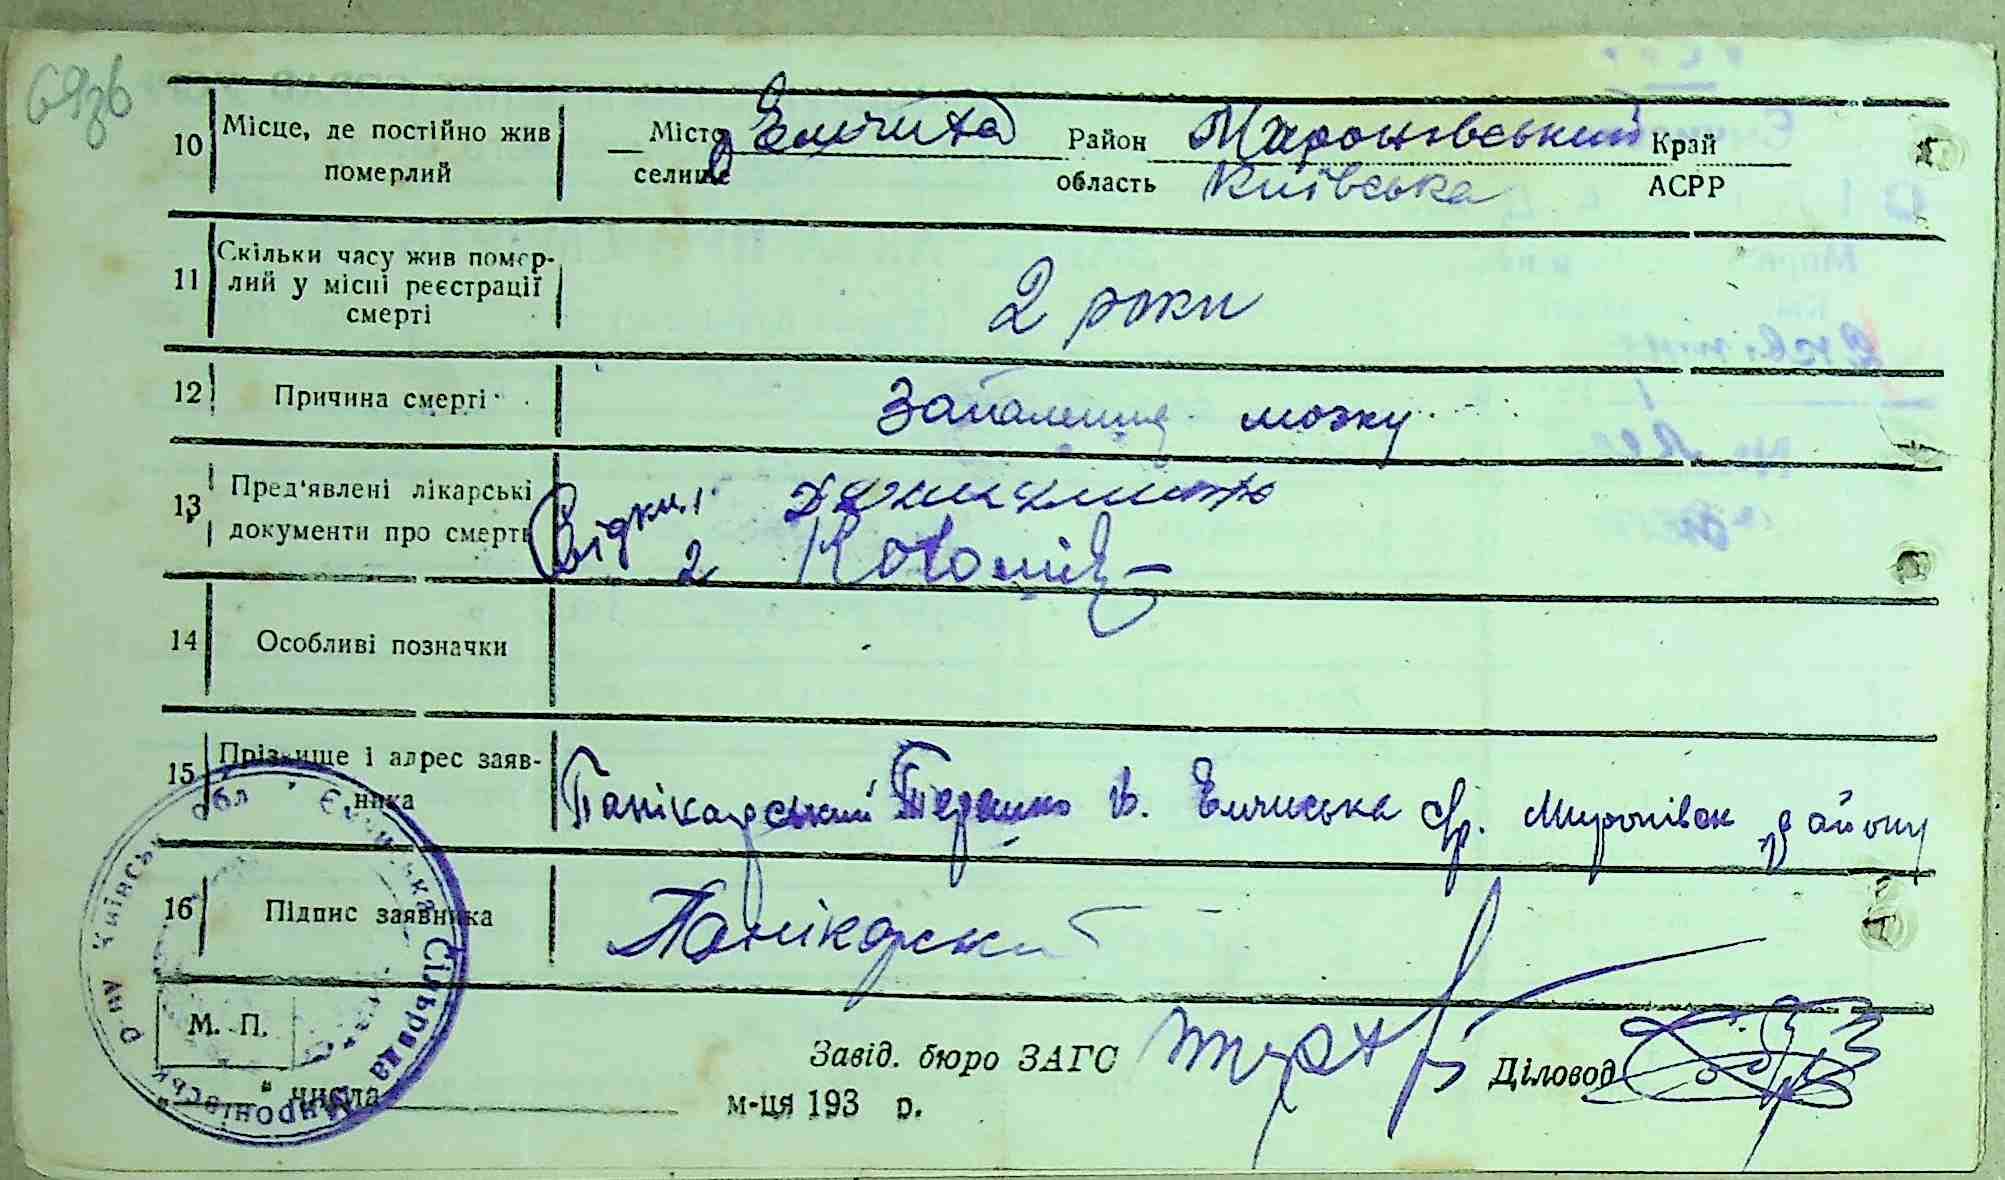 69зв
10 Місце, де постійно жив померлий Місто селище с Емчиха Район область Мироновський Київська Край АСРР
11 Скільки часу жив померлий у місці реєстрації смерті 2 роки
12 Причина смерті Запалення мозку
13 Пред'явлені лікарські документи про смерть
14 Особливі позначки
15 Прізвище і адрес заявника Панікарський в. Емчиська с/р. Миронівск району
16 Підпис заявника Панікарський
М. П.
Завід. бюро ЗАГС Діловод
" числа м-ця 193 р.
Ємчиська Сільрада Миронівськ р-ну Київськ обл